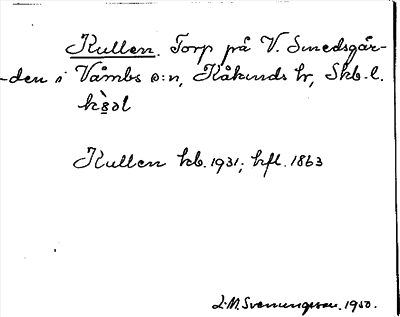 Kullen. Torp på V. Smedsgår-
den i Våmbs s:n, Kåkinds hr, Skb. l.
Kullen kb. 1931; hfl. 1863
L. M. Svenungsson. 1950.